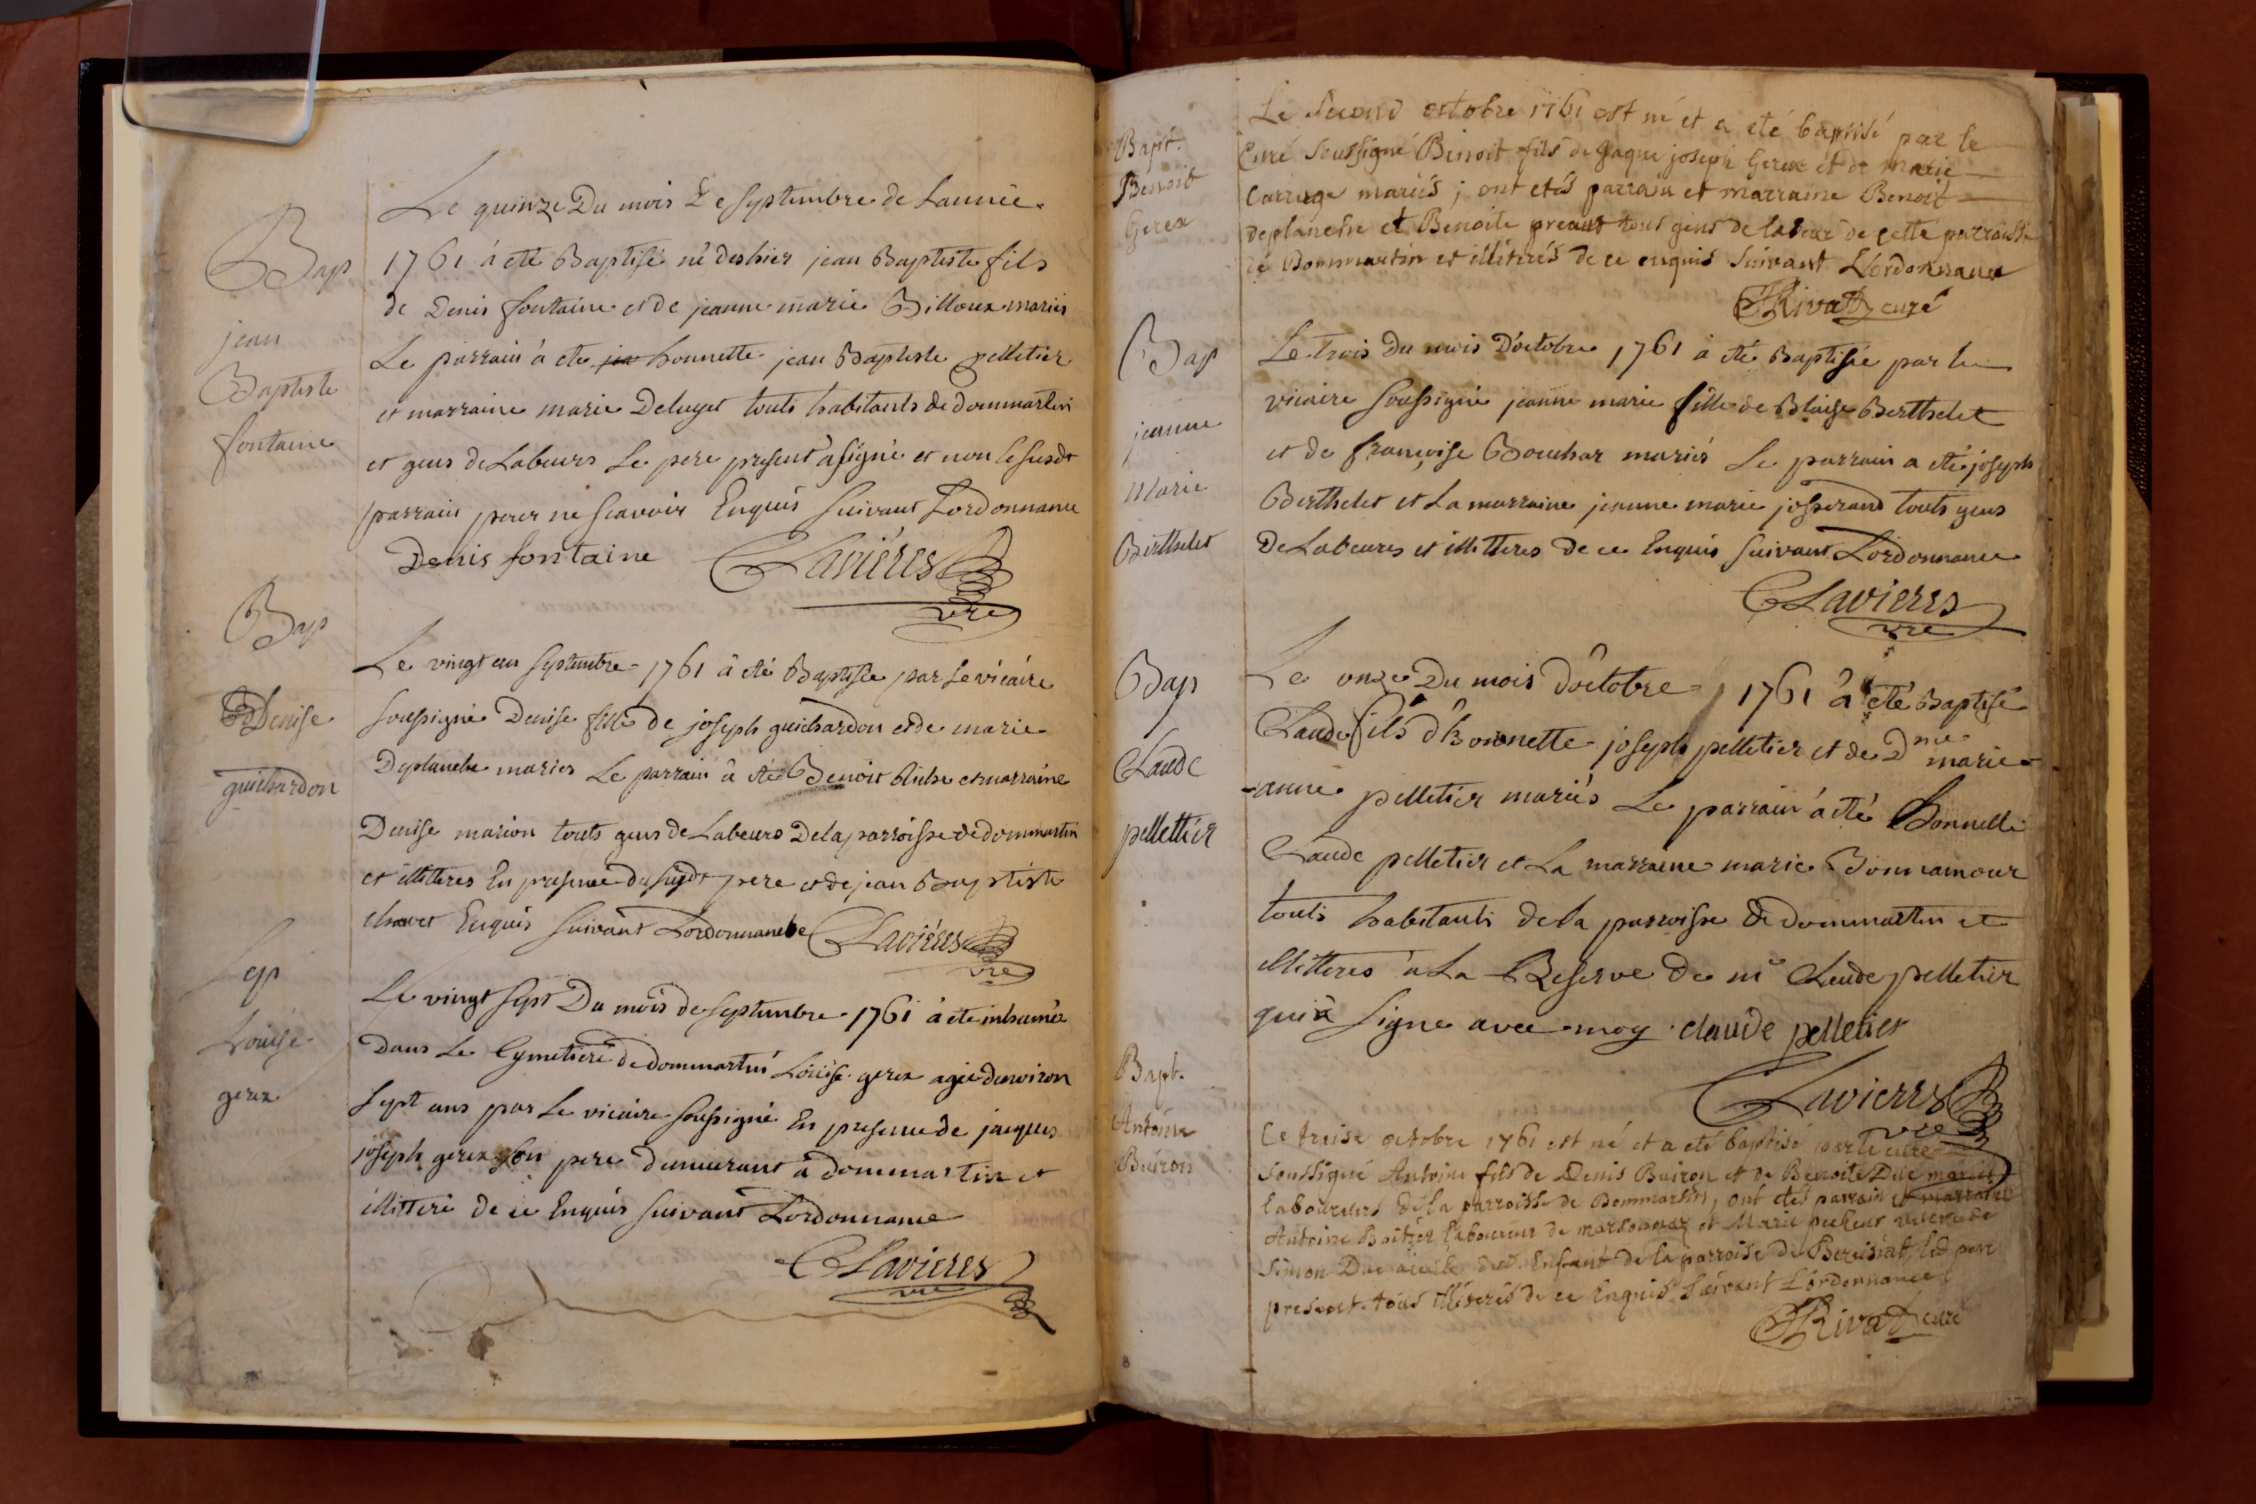 Bap
jean
Baptiste
fontaine
Le quinze Du mois De septembre de Lannée
1761 á eté Baptisé né des hier jean Baptiste fils
de Denis fontaine et de jeanne marie Billoux mariés
Le parrain á ete honnette jean Baptiste pelletier
et marraine marie Deluget touts habitants de dommartin
et gens de Labeurs Le pere present á signé et non le susdt
parrain pour ne scavoir Enquis suivant Lordonnance
Denis fontaine Clavières
vre
Bap
Denise
guichardon
Le vingt un septembre 1761 â eté Baptisée par le vicaire
soussigné Denise fille de joseph guichardon et de marie
Deplanche mariés Le parrain â eté Benoit et marraine
Denise marion touts gens de Labeurs De la parroisse de dommartin
et illitteres En presence du susdt pere et de jean Baptiste
Enquis suivant Lordonnance Clavières
vre
Sep
Louise
gerex
Le vingt sept Du mois de septembre 1761 á eté inhumée
Dans Le Cymetiere de dommartin Louise gerex agée denviron
sept ans par Le vicaire soussigné En presence de jacques
joseph gerex son pere demeurant á dommartin et
illitteré de ce Enquis suivant Lordonnance
Clavieres
vre
Bapt.
Benoit
Gerex
Le second octobre 1761 est né et a eté baptisé par le
Curé soussigné Benoit fils de Jaque joseph Gerex et de Marie
Carruge mariés ; ont etés parrain et marraine Benoit
deplanche et Benoite preaut tous gens de labeur de cette parroisse
de Dommartin et illiterés de ce enquis suivant L'ordonnance
Rivat curé
Bap
jeanne
Marie
Berthelet
Le trois Du mois D'octobre 1761 á eté Baptisée par le
vicaire soussigné jeanne marie fille de Blaise Berthelet
et de françoise Bouchar mariés Le parrain a eté joseph
Berthelet et La marraine jeanne marie josserand touts gens
De Labeures et illitteres de ce Enquis suivant Lordonnance
Clavieres
vre
Bap
Claude
pellettier
Le onze Du mois D'octobre 1761 â eté Baptisé
Claude fils d'honnette joseph pelletier et de Dme marie
-anne pelletier mariés Le parrain á eté honnette
Claude pelletier et La marraine marie Bonnamour
touts habitants de la parroisse de dommartin et
illitteres a La Reserve de mr Claude pelletier
qui á signe avec moy . claude pelletier
Clavieres
vre
Bapt.
Antoine
Buiron
Le treise octobre 1761 est né et a eté baptisé par le curé
soussigné Antoine fils de Denis Buiron et de Benoite Duc mariés
laboureurs de la parroisse de Dommartin, ont etés parrain et marraine
Antoine Boitier laboureur de marsonnaz et Marie pecheur veuve de
Simon Duc ayeule dud. Enfant de la parroisse de Bereisiat led pere
present. tous illiterés de ce Enquis suivant L'ordonnance
Rivat curé